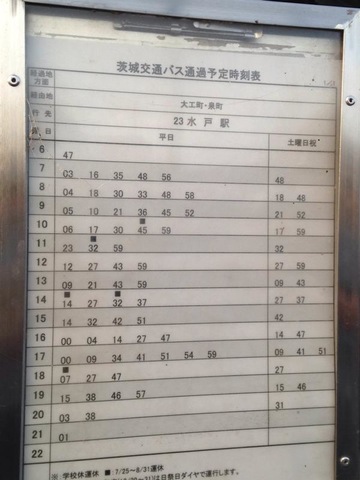 茨城交通バス通過予定時刻表
経過地方面
経由地 大工町・泉町
行先 23水戸駅
曜日 平日 土曜日祝
6 47
7 03 16 35 48 56 48
8 04 18 30 33 48 58 18 48
9 05 10 21 36 45 52 21 52
※
10 06 17 30 45 59 17 59
■
11 23 32 59 32
12 12 27 43 59 27 59
13 09 21 43 59 09 43
■ ■
14 14 27 32 37 27 37
15 14 32 42 51 42
16 00 04 14 27 47 14 47
17 00 09 34 41 51 54 59 09 41 51
■
18 07 27 47 27
19 15 38 46 57 15 46
20 03 38 31
21 01
22
※:学校休運休 ■:7/25~8/31運休
は日祭日ダイヤで運行します。